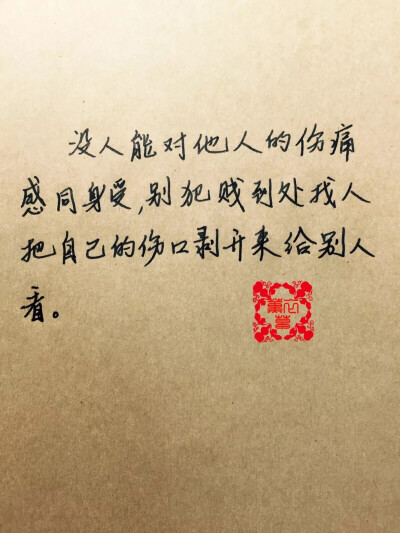 没人能对他人的伤痛
感同身受,别犯贱到处找人
把自己的伤口剥开来给别人
看。